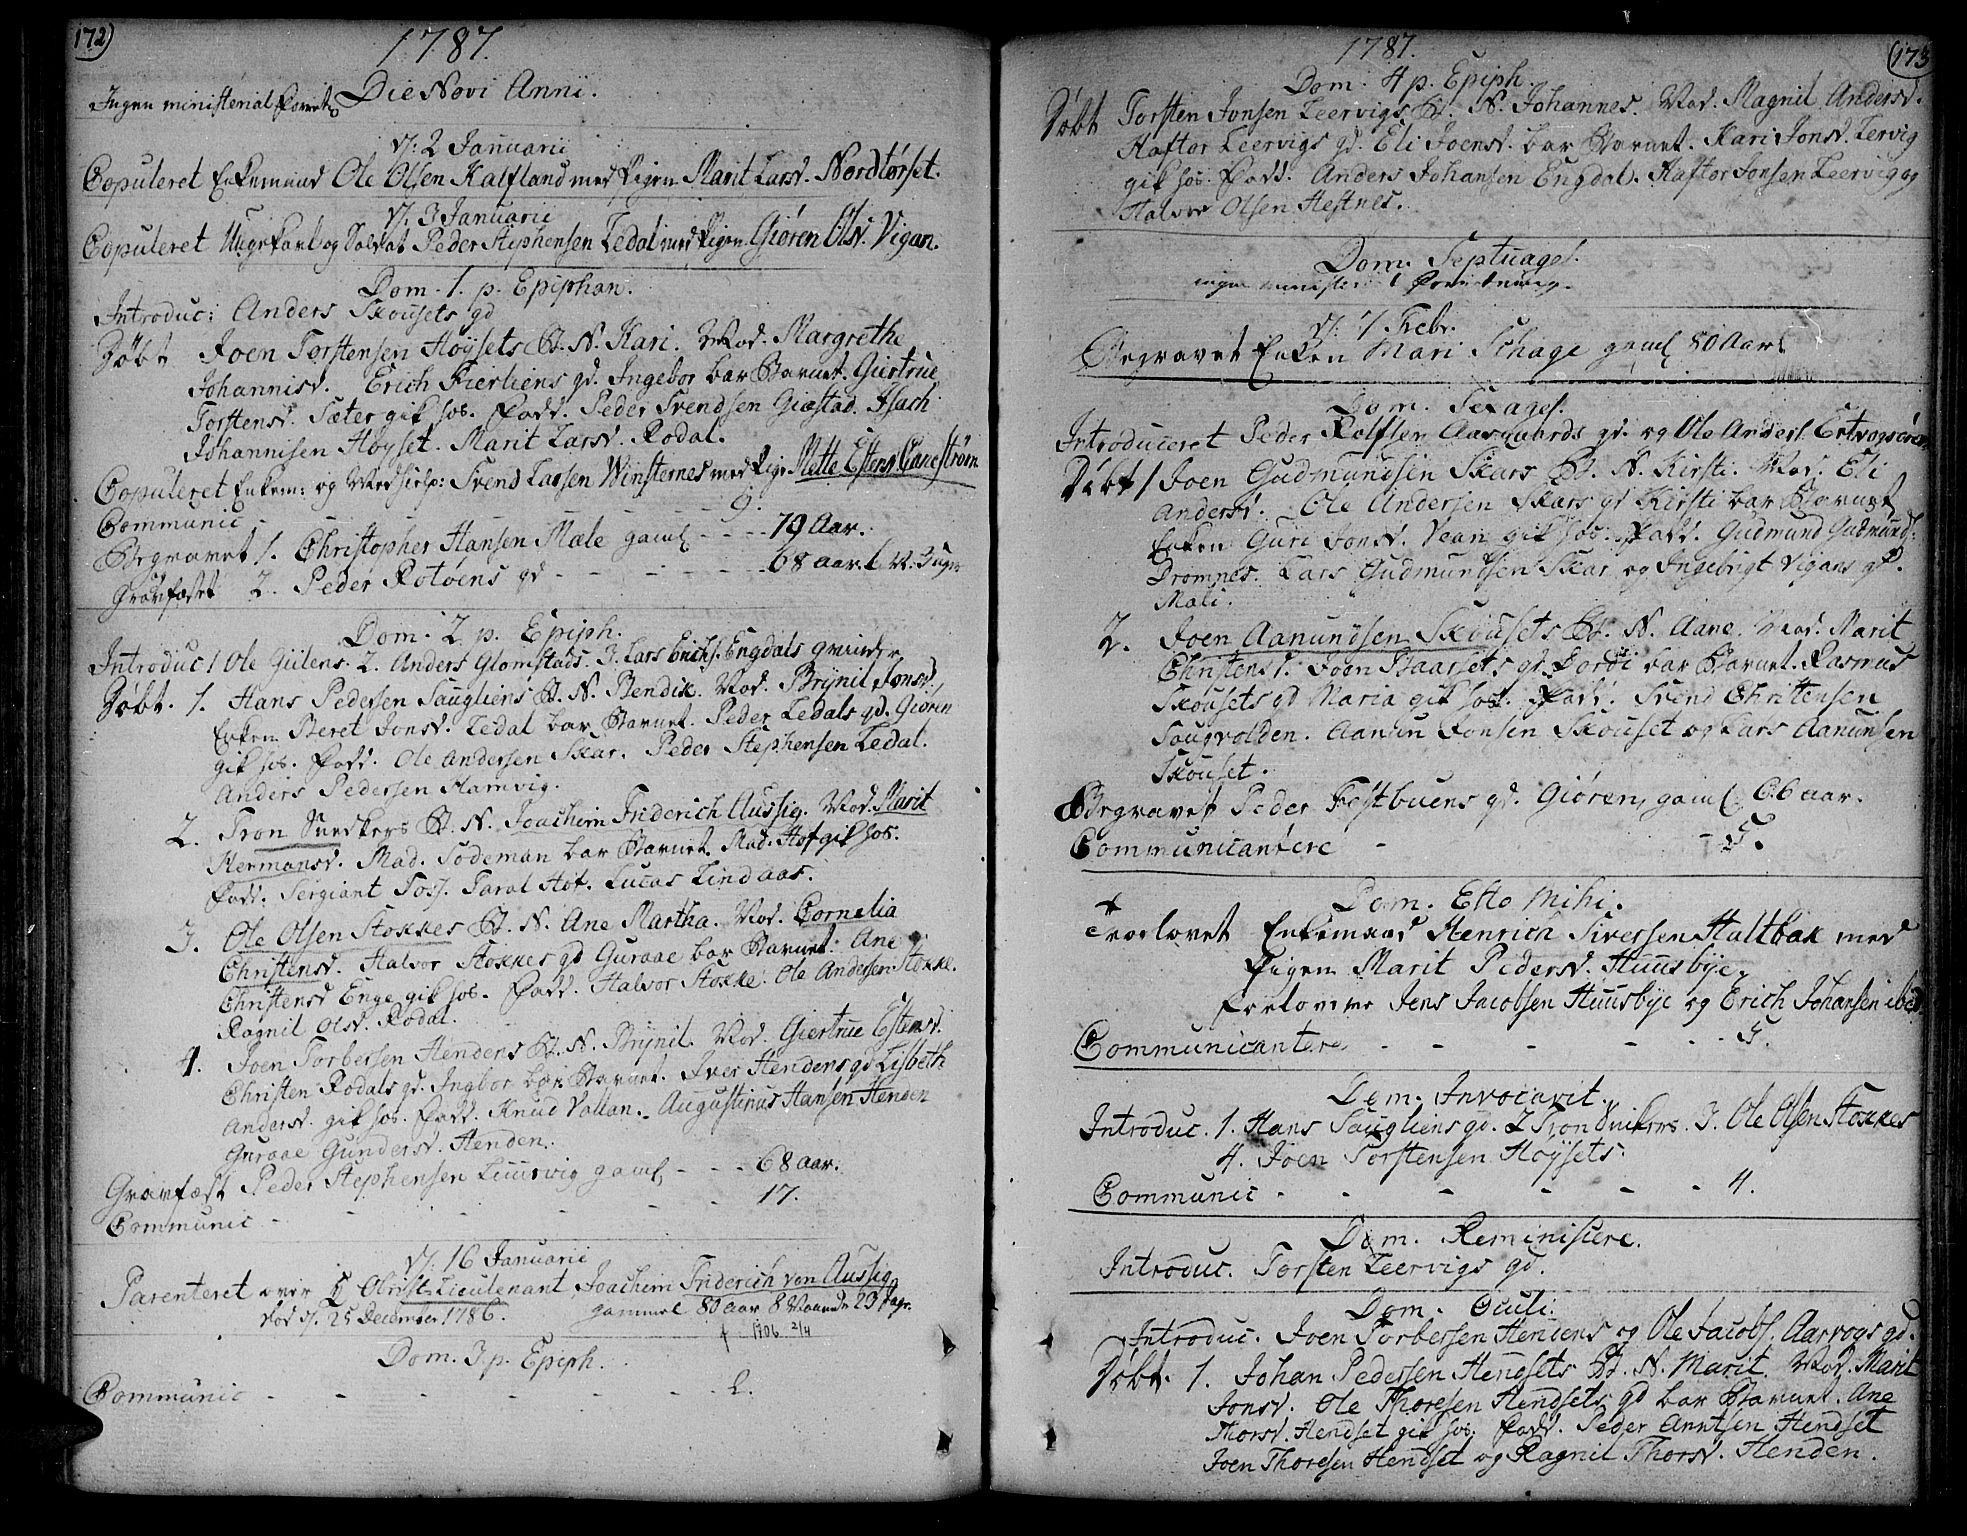 172)
1787.
Die Novi Anni.
Ingen ministerial Forret.
d. 2 Januarii
Copuleret Enkemand Ole Olsen Kalfland med Pigen Marit Larsd. Nordtørset.
d. 3 Januarii
Copuleret Ungekarl og Soldat Peder Stephensen Ledal med Pigen Giøren Olsd. Vigan.
Dom. 1. p. Epiphan.
Introduc: Anders Skousets qd
Døbt Joen Torstensen Høysets B. N. Kari. Mod. Margrethe
Johannisd. Erich Fierliens qd. Ingebor bar Barnet. Giertrue
Torstensd. Sæter gik hos. Fadd. Peder Svendsen Giæstad. Isach
Johannisen Høyset. Marit Larsd. Rodal.
Copuleret Enkem: og Medhielp: Svend Larsen Winsternes med Pige Mette Estensd. Garestrøm
Communic - - - - - 9.
Begravet 1. Christopher Hansen Mæle gaml - - - 79 Aar.
Gravfæstet 2. Peder Rotøens qd - - - - - 68 aar
Dom. 2 p. Epiph.
Introduc 1 Ole Gülens. 2. Anders Glomstads. 3. Lars Erichs. Engdals qvinder
Døbt. 1. Hans Pedersen Saugliens B. N. Bendik. Mod. Brÿnil Jonsd.
Enken Beret Jonsd. Ledal bar Barnet. Peder Ledals qd. Giøren
gik hos. Fadd. Ole Andersen Skar. Peder Stephensen Ledal.
Anders Pedersen Hamvig.
2. Tron Snedkers B. N. Joachim Friderich Aussig. Mod. Marit
Hermansd. Mad. Sodeman bar Barnet. Mad. Hof gik hos.
Fadd. Sergiant Foss. Taral Hof. Lucas Lindaas.
3. Ole Olsen Stokkes B. N. Ane Martha. Mod. Cornelia
Christensd. Halvor Stokkes qd Guraae bar Barnet. Ane
Christensd Enge gik hos. Fadd. Halvor Stokke. Ole Andersen Stokke.
Ragnil Olsd. Rodal.
4. Joen Torbersen Hendens B. N. Brÿnil. Mod. Giertrue Estensd.
Christen Rodals qd. Ingbor bar Barnet. Iver Hendens qd Lisbeth
Andersd. gik hos. Fadd. Knud Vallan. Augustinus Hansen Henden
Guraae Gundersd. Henden.
Gravfæst Peder Stephensen Liursvig gaml - - - 68 aar.
Communic - - - - - 17.
d. 16 Januarii
Parenteret over Obrist-Lieutenant Joachim Friderich von Aussig
død d. 25 December 1786. gammel 80 aar 8 Maaneder 23 dage.
f 1706 2/4
Dom. 3 p. Epiph.
Communic - - - - - 2.
(173
1787.
Dom. 4 p. Epiph.
Døbt Torsten Jonsen Leervigs B. N. Johannes. Mod. Magnil Andersd.
Haftor Leervigs qd. Eli Joensd. bar Barnet. Kari Jonsd. Lervig
gik hos. Fadd. Anders Johansen Engdal. Haftor Jonsen Leervig og
Halvor Olsen Hestnes.
Dom. Septuages.
ingen ministerial Forretning.
d. 7 Febr.
Begravet Enken Mari Schage gaml 80 Aar
Dom. Sexages.
Introduceret Peder Rolfsen Aasgaards qd. og Ole Anders. Ertvogsøren
Døbt 1 Joen Gudmundsen Skars B. N. Kirsti. Mod. Eli
Andersd. Ole Andersen Skars qd Kirsti bar Barnet
Enken Guri Jonsd. Vean gik hos. Fadd. Gudmund Gudmunds:
Dromnes. Lars Gudmundsen Skar og Ingebrigt Vigans qd.
Mali.
2. Joen Aanundsen Skousets B. N. Aane. Mod. Marit
Christensd. Joen Staarsets qd Dordi bar Barnet. Rasmus
Skousets qd Maria gik hos. Fadd. Svend Christensen
Saugvolden. Aanun Jonsen Skouset og Lars Aanunsen
Skouset.
Begravet Peder Festbuens qd. Giøren, gaml 66 aar.
Communicantere - - 5.
Dom. Esto Mihi.
Trolovet Enkemand Henrich Siversen Haltbak med
Pigen Marit Pedersd. Huusbye.
Forlovere Jens Jacobsen Huusbye og Erich Johansen ibid.
Communicantere. - - - - 5.
Dom. Invocavit.
Introduc. 1. Hans Saugliens qd. 2 Tron Snikers. 3. Ole Olsen Stokkes
4. Joen Torstensen Høysets.
Communic - - - - - 4.
Dom. Reminiscere.
Introduc. Torsten Leervigs qd.
Dom. Oculi.
Introduc. Joen Torbersen Hendens og Ole Jacobs. Aarvogs qd.
Døbt. 1. Johan Pedersen Hendsets B. N. Marit. Mod. Marit
Jonsd. Ole Thoresen Hendsets qd bar Barnet. Ane
Thorsd. Hendset gik hos. Fadd. Peder Anntsen Hendset
Joen Thoresen Hendset og Ragnil Thorsd. Henden.